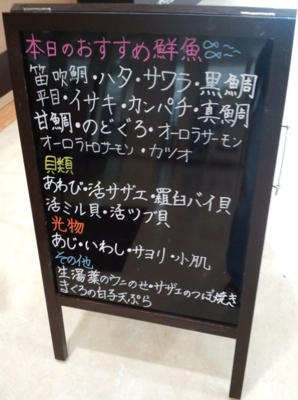 本日のおすすめ鮮魚
笛吹鯛・ハタ・サワラ・黒鯛
平目・イサキ・カンパチ・真鯛
甘鯛・のどぐろ・オーロラサーモン
オーロラトロサーモン・カツオ
貝類
あわび・活サザエ・羅臼バイ貝
活ミル貝・活ツブ貝
光物
あじ・いわし・サヨリ・小肌
その他
生湯葉のウニのせ・サザエのつぼ焼き
まぐろの白子天ぷら